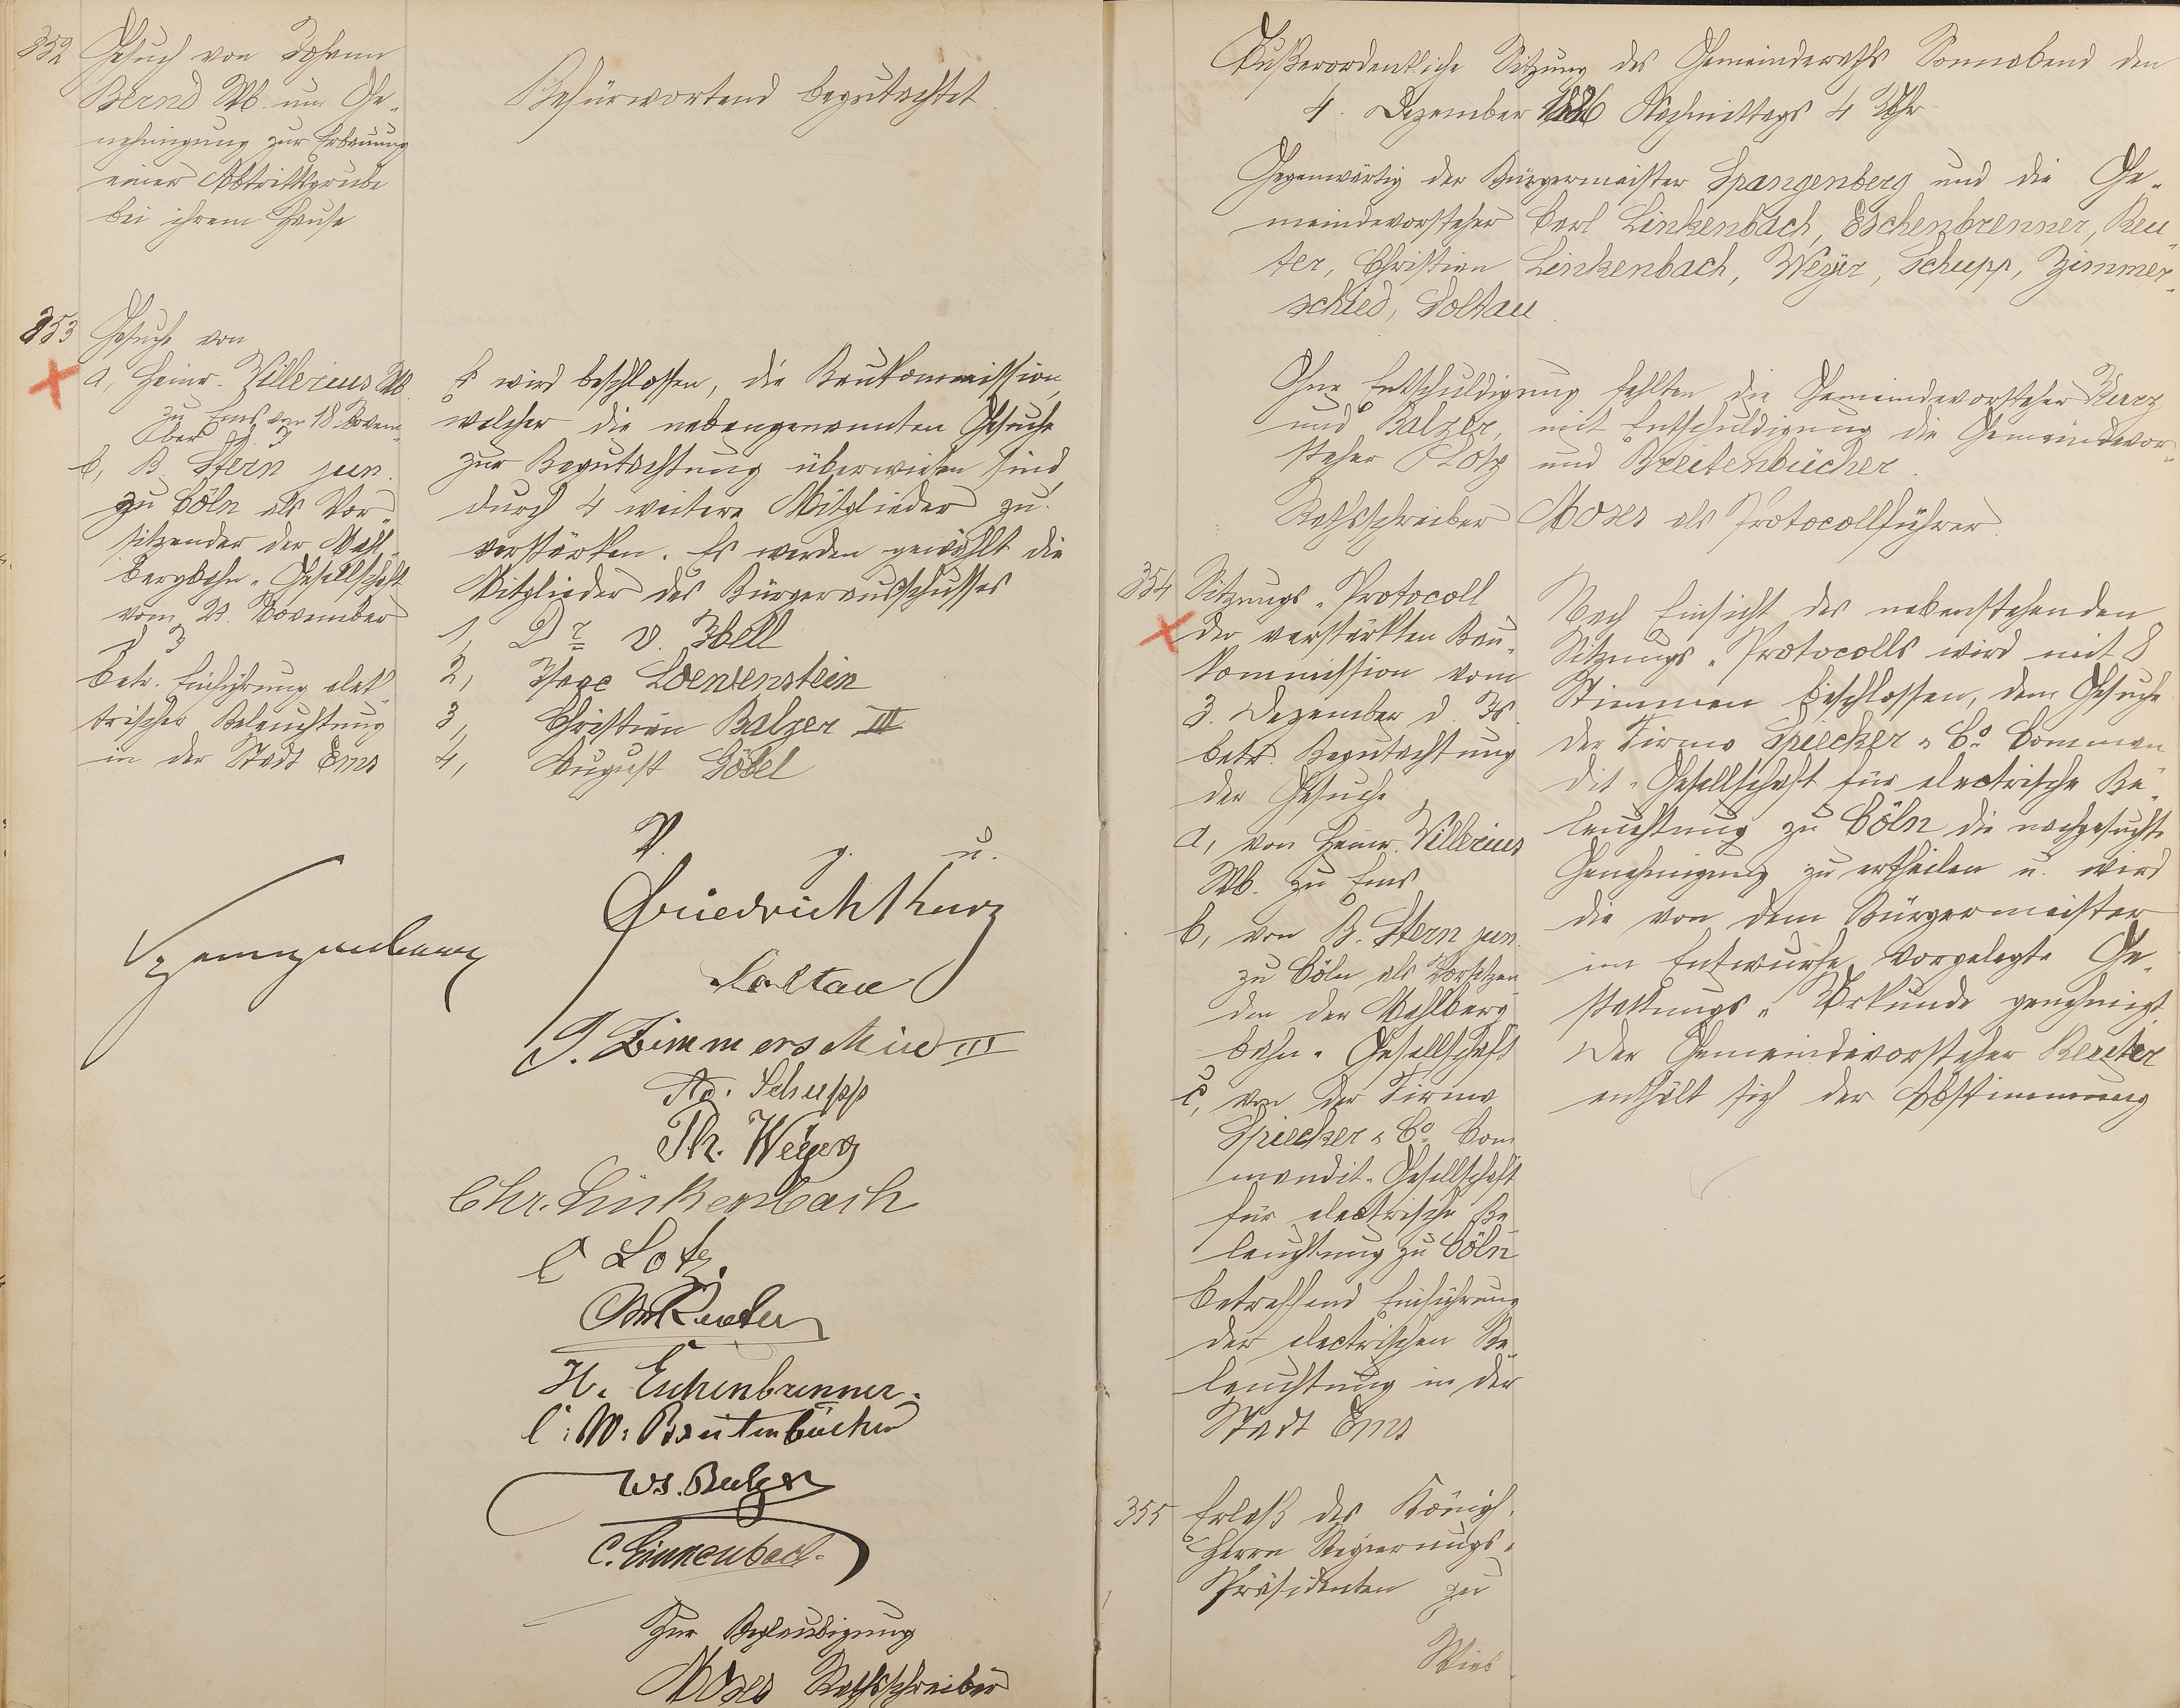 352
Gesuch von Johann
Bernd Wb. um Ge-
nehmigung zur Erbauung
einer Abtrittsgrube
bei ihrem Hause
Befürwortend begutachtet
353
Gesuche von
a, Heinr. Villerius Wb.
zu Ems vom 18 Novem-
ber d. J.
b, B. Stern jun.
zu Cöln als Vor-
sitzender der Mahl-
bergbahn-Gesellschaft
vom 23. November
d J
betr. Einführung elek-
trischer Beleuchtung
in der Stadt Ems
Es wird beschlossen, die Baukommission,
welcher die nebengenannten Gesuche
zur Begutachtung überwiesen sind,
durch 4 weitere Mitglieder zu
verstärken. Es werden gewählt die
Mitglieder des Bürgerausschusses
1, Dr v. Ibell
2, Isaac Loewenstein
3, Christian Balzer III
4, August Göbel
V. g. u.
Friedrich Kurz
Soltau
Spangenberg
J. Zimmerschied III
Ad. Schupp
Th. Weyer
Chr. Linkenbach
C Lotz.
Reuter
H. Eschenbrenner.
C: W: Breitenbücher
Ws. Balzer
C. Linkenbach.
Zur Beglaubigung
Moses Rathsschreiber
Außerordentliche Sitzung des Gemeinderaths Sonnabend den
4. Dezember 1886 Nachmittags 4 Uhr
Gegenwärtig der Bürgermeister Spangenberg und die Ge-
meindevorsteher Carl Linkenbach, Eschenbrenner, Reu-
ter, Christian Linkenbach, Weyer, Schupp, Zimmer-
schied, Soltau.
Ohne Entschuldigung fehlten die Gemeindevorsteher Kurz
und Balzer, mit Entschuldigung die Gemeindevor-
steher Lotz und Breitenbücher.
Rathsschreiber Moses als Protocollführer.
354
Sitzungs-Protocoll
der verstärkten Bau-
kommission vom
3. Dezember d. Js.
betr. Begutachtung
der Gesuche
a, von Heinr. Villerius
Wb. zu Ems
b, von B. Stern jun.
zu Cöln als Vorsitzen-
den der Mahlberg-
bahn-Gesellschaft
c, von der Firma
Spiecker & Co. Com-
mandit-Gesellschaft
für electrische Be-
leuchtung zu Cöln
betreffend Einführung
der electrischen Be-
leuchtung in der
Stadt Ems
Nach Einsicht des nebenstehenden
Sitzungs-Protocolls wird mit 8
Stimmen beschlossen, dem Gesuche
der Firma Spiecker & Co. Comman-
dit-Gesellschaft für electrische Be-
leuchtung zu Cöln die nachgesuchte
Genehmigung zu ertheilen u. wird
die von dem Bürgermeister
im Entwurfe vorgelegte Ge-
stattungs-Urkunde genehmigt.
Der Gemeindevorsteher Reuter
enthält sich der Abstimmung
355
Erlaß des Königl.
Herrn Regierungs-
Präsidenten zu
Wies-